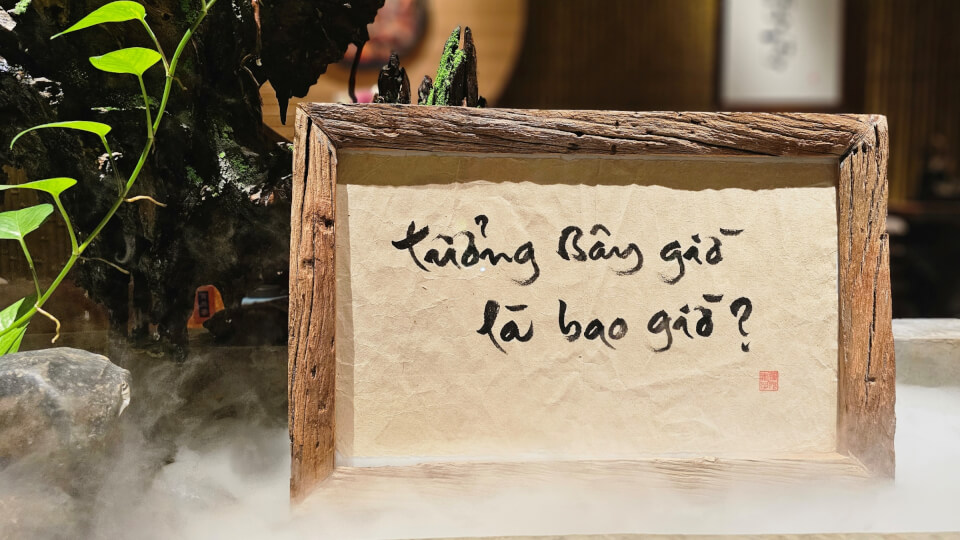 tưởng Bây giờ
là bao giờ?